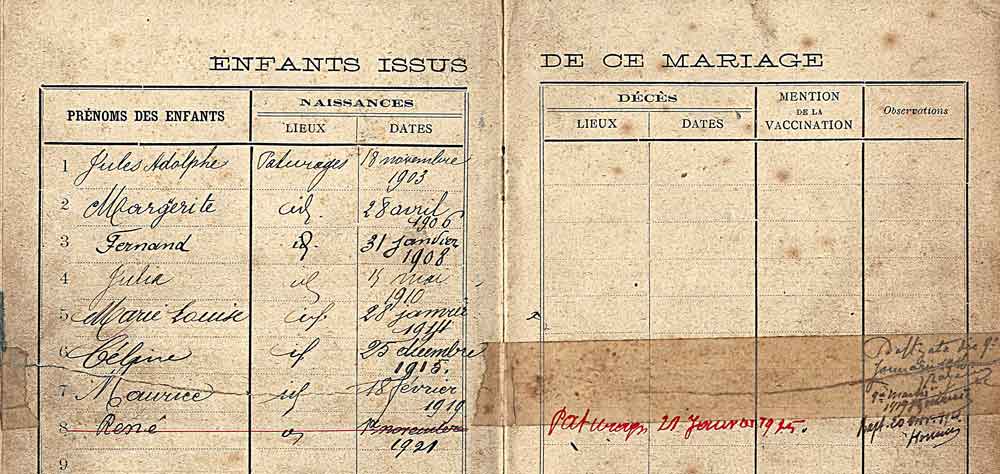 ENFANTS ISSUS DE CE MARIAGE
PRÉNOMS DES ENFANTS NAISSANCES DÉCÈS MENTION DE LA VACCINATION Observations
LIEUX DATES LIEUX DATES
1 Jules Adolphe Paturages 18 novembre
1903
2 Margerite id 28 avril
1906
3 Fernand id. 31 janvier
1908
4 Julia id mai
1910
5 Marie Louise id. 28 janvier
1914
6 Céline id 25 décembre
1915.
7 Maurice id 18 février
1919
8 René id 1er novembre Paturages 21 Janvier 1925.
1921
9